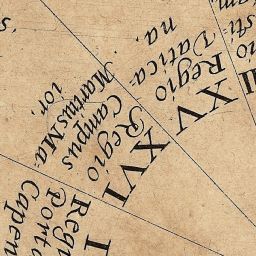 XV
Regio
Vatica-
na.
XVI
Regio
Campus
Martius Ma-
ior.
Regi
Porta
Capen